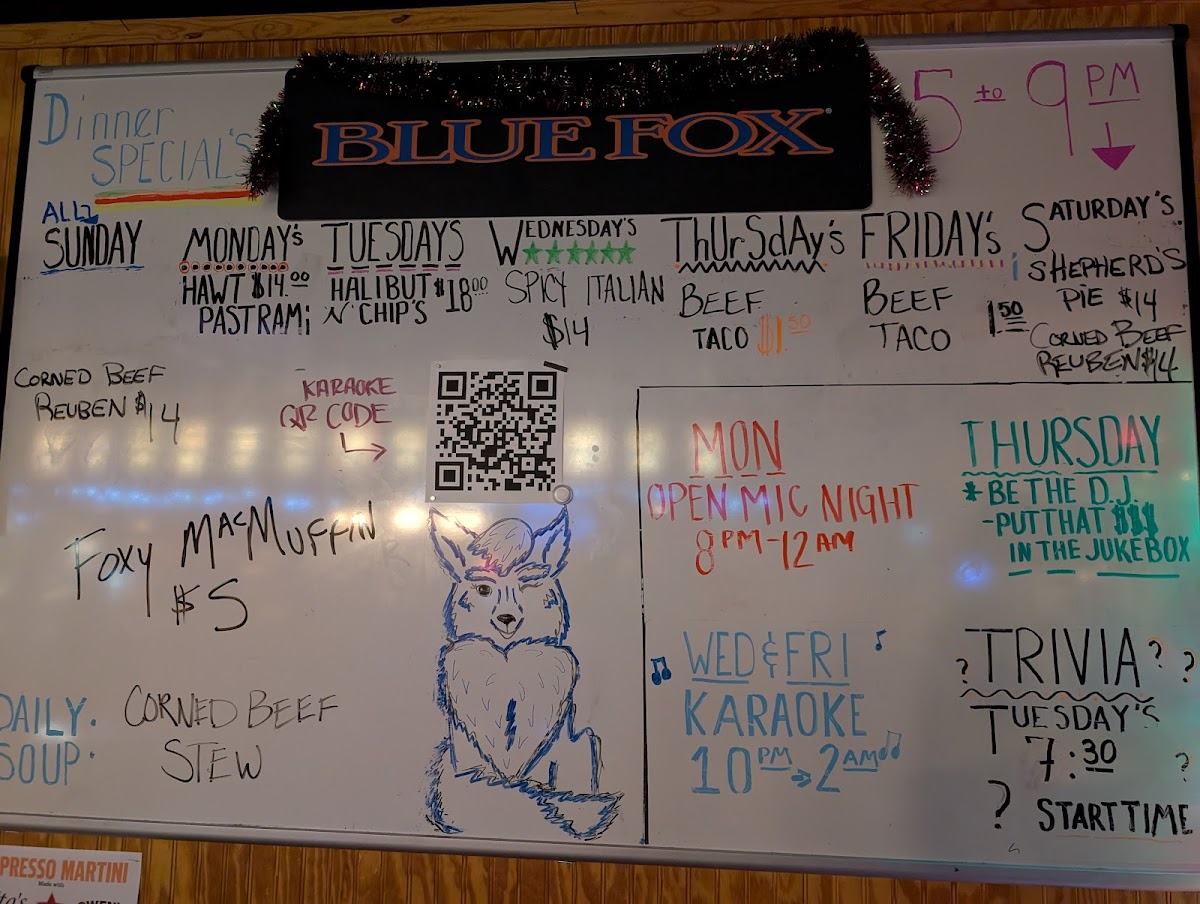 Dinner
SPECIAL'S
BLUE FOX
5 to 9 PM
ALL
SUNDAY
CORNED BEEF
REUBEN $14
MONDAY'S
HAWT $14.00
PASTRAMi
TUESDAYS
HALIBUT $18.00
N' CHIP'S
WEDNESDAY'S
SPICY ITALIAN
$14
ThUrSdAy's
BEEF
TACO $1.50
FRIDAY's
BEEF
TACO 1.50
SATURDAY'S
SHEPHERD'S
PIE $14
CORNED BEEF
REUBEN $14
KARAOKE
QR CODE
FOXY MACMUFFIN
$5
DAILY
SOUP
CORNED BEEF
STEW
MON
OPEN MIC NIGHT
8 PM-12 AM
THURSDAY
* BE THE D.J.
-PUT THAT $$$
IN THE JUKEBOX
WED & FRI
KARAOKE
10 PM → 2 AM
? TRIVIA ? ?
TUESDAY'S
7:30 ?
? START TIME
PRESSO MARTINI
Made with